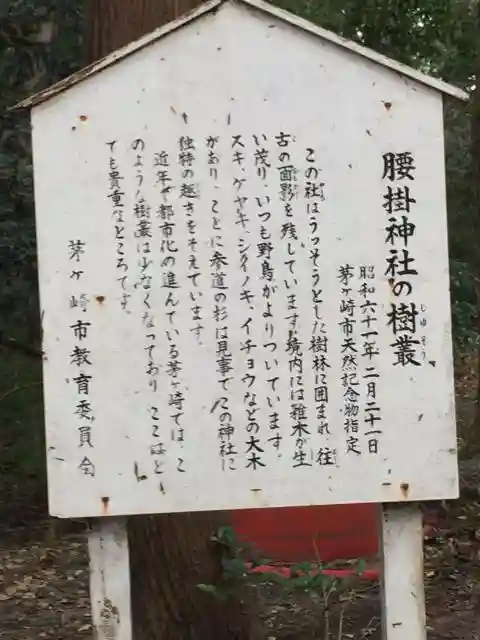 腰掛神社の樹叢
じゅそう
昭和六十一年二月二十一日
茅ヶ崎市天然記念物指定
この社はうっそうとした樹林に囲まれ、往
古の面影を残しています。境内には雑木が生
い茂り、いつも野鳥がよりついています。
スギ、ケヤキ、シイノキ、イチョウなどの大木
があり、ことに参道の杉は見事でこの神社に
独特の趣きをそえています。
近年、都市化の進んでいる茅ヶ崎では、こ
のような樹叢は少なくなっており、ここはと
ても貴重なところです。
茅ヶ崎市教育委員会